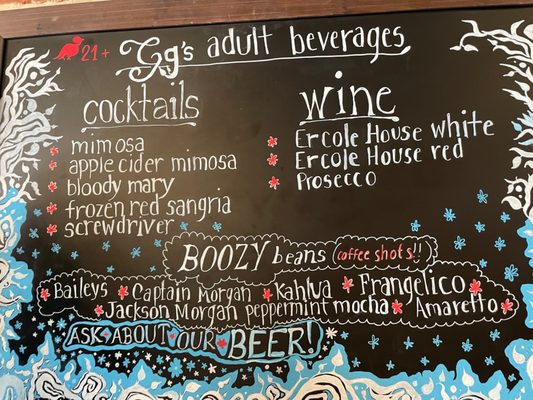 21+ Gg's adult beverages
cocktails
mimosa
apple cider mimosa
bloody mary
frozen red sangria
screwdriver
wine
Ercole House white
Ercole House red
Prosecco
BOOZY beans (coffee shots!!)
Baileys Captain Morgan Kahlua Frangelico
Jackson Morgan peppermint mocha Amaretto
ASK ABOUT OUR BEER!